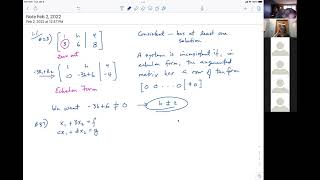 Note Feb 2, 2022
Feb 2, 2022 at 12:57 PM
1 h 4
3 6 8
Zero out
-3R1+R2
1 h 4
0 -3h+6 -4
Echelon Form
We want -3h+6 ≠ 0 → h ≠ 2
x₁ + 3x₂ = f
cx₁ + dx₂ = g
Consistent - has at least one
solution
A system is inconsistent if, in
echelon form, the augmented
matrix has a row of the form
[0 0 ... 0 | ≠0]